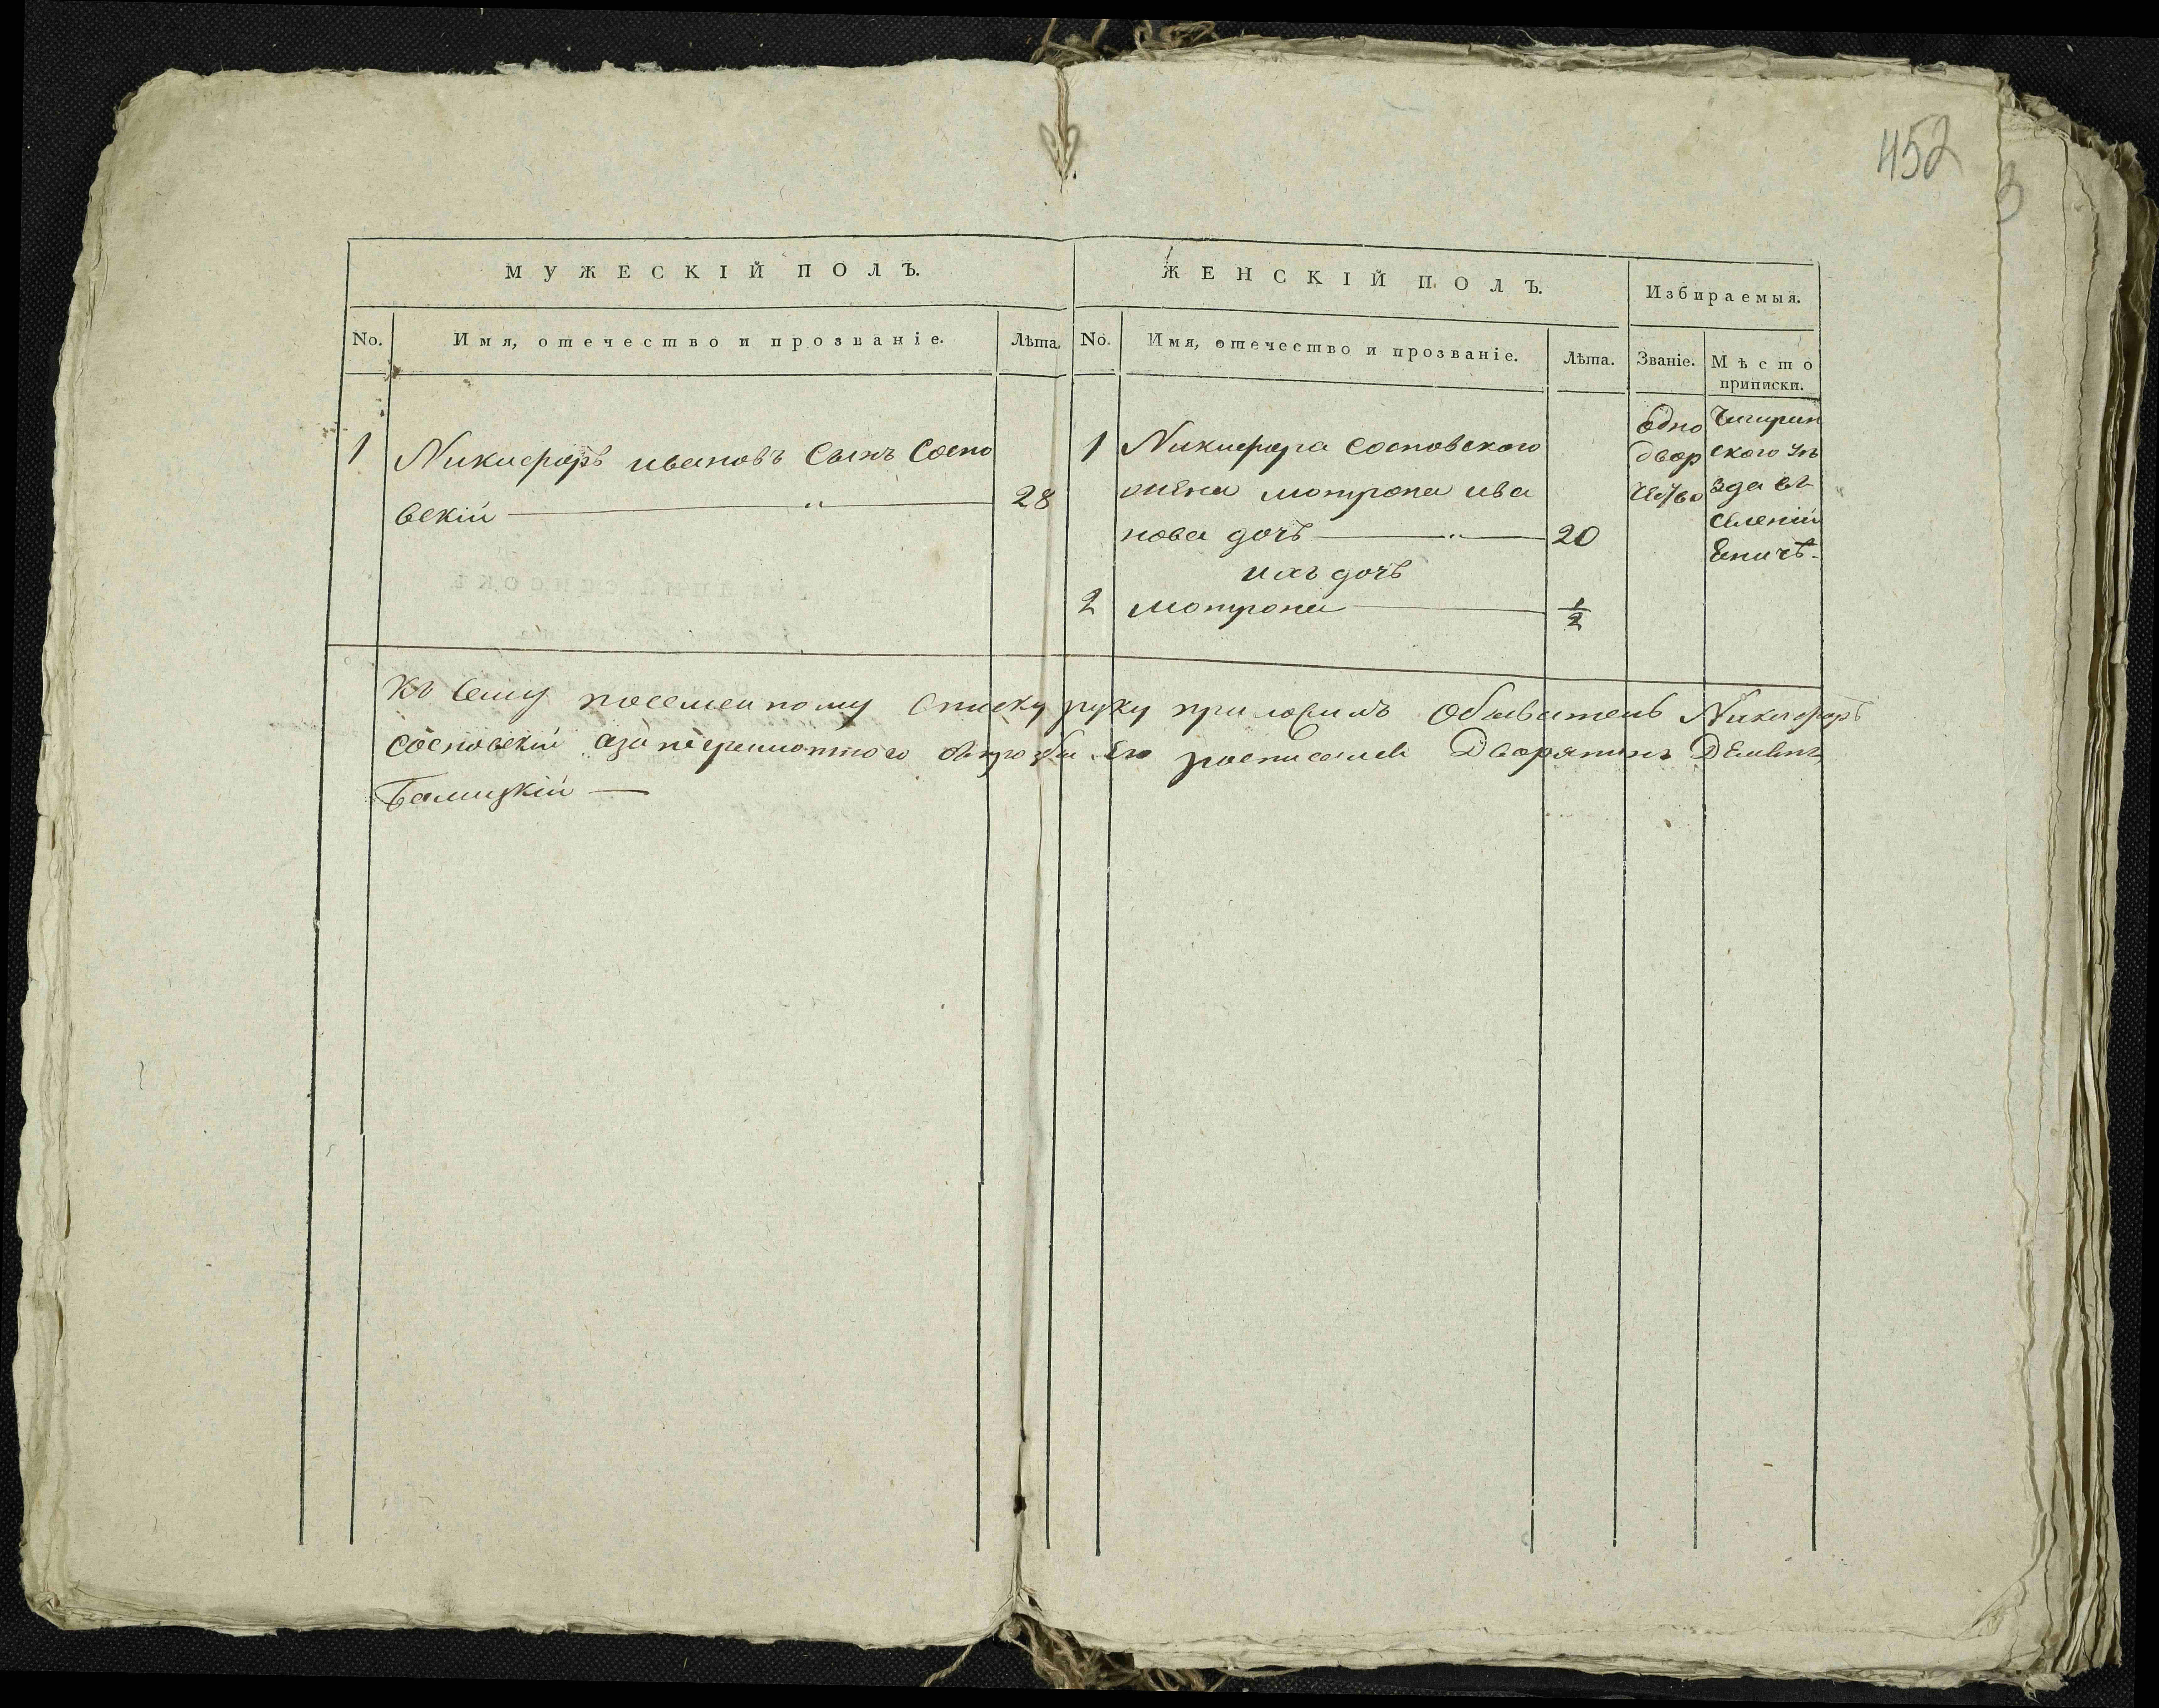 452
МУЖЕСКІЙ ПОЛЪ.
ЖЕНСКІЙ ПОЛЪ.
Избираемыя.
No.
Имя, отечество и прозваніе.
Лѣта
No.
Имя, отечество и прозваніе.
Лѣта.
Званіе.
Мѣсто
приписки.
1
Никифоръ ивановъ Сынъ Сосно
вскій — „ —
28
1
Никифора Сосновского
жена мотрона ива
нова дочь — „ —
20
ихъ дочь
2
мотрона —
1/2
Одно
двор
Чигирин
ского уѣ
зда въ
селеніи
Къ сему посемейному Списку руку приложилъ Обыватель Никифоръ
Сосновскій азанеграмотного Его росписался Дворянинъ
Балицкій —